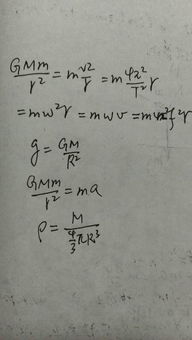 GMm/r² = m v²/r = m 4π²/T² r
= mω²r = mωv = m f² r
g = GM/R²
GMm/r² = ma
ρ = M / (4/3 πR³)